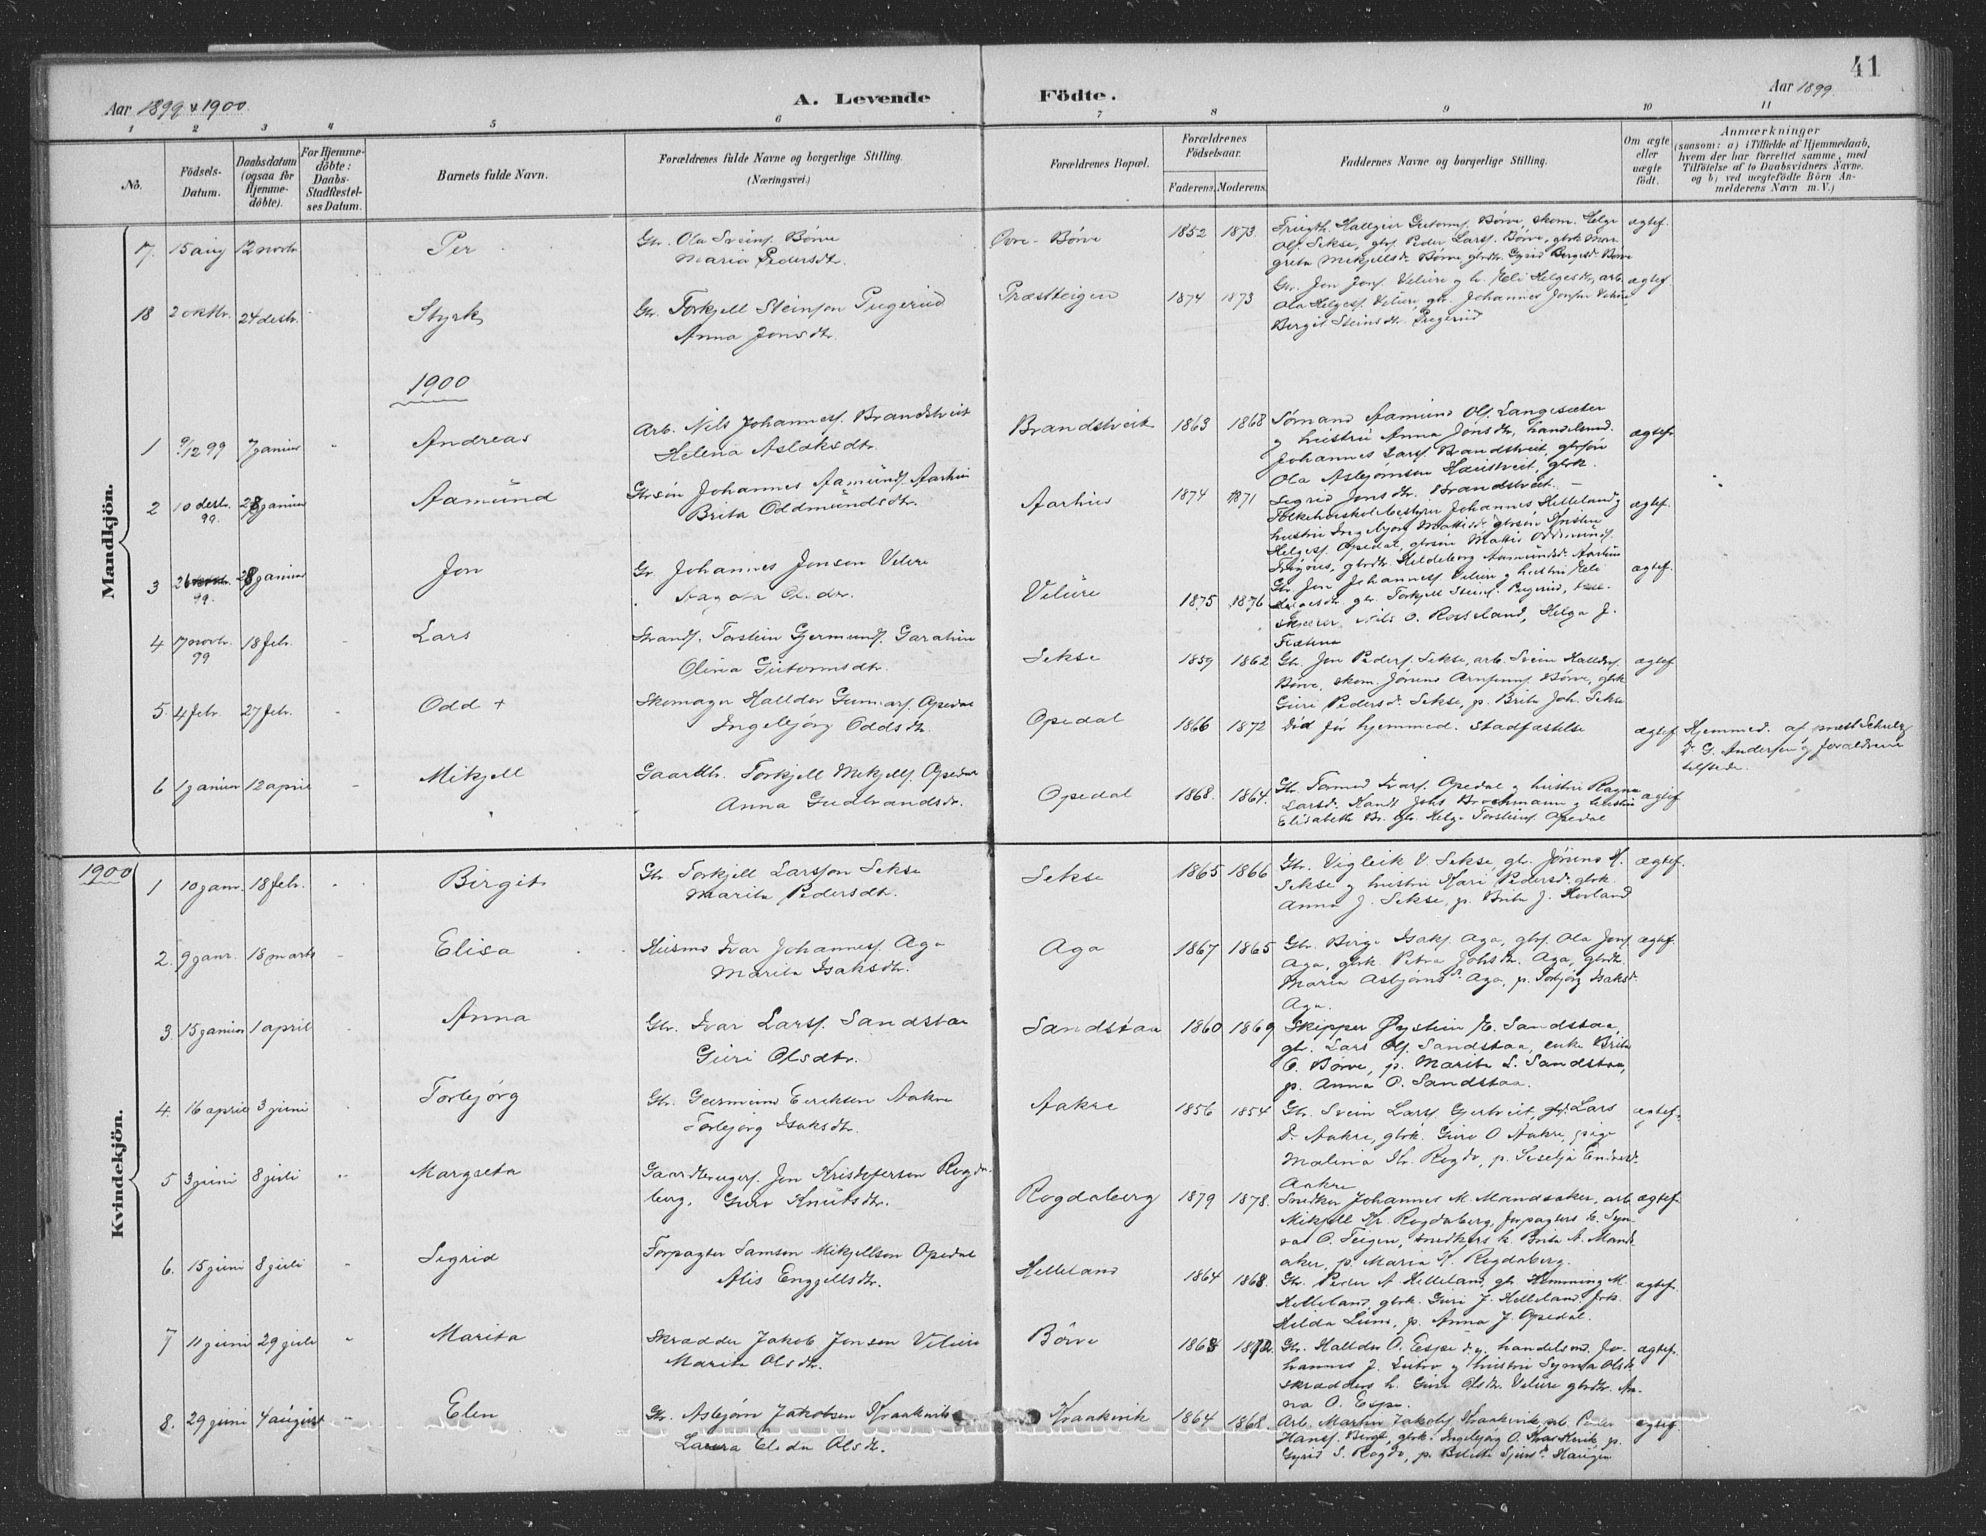 41
Aar 1899 & 1900.
A. Levende Födte.
Aar 1899.
1 2 3 4 5 6 7 8 9 10 11
No.
Födsels-Datum.
Daabsdatum (ogsaa for Hjemmedöbte).
For Hjemmedöbte: Daabs-Stadfæstelses Datum.
Barnets fulde Navn.
Forældrenes fulde Navne og borgerlige Stilling.
(Næringsvei.)
Forældrenes Bopæl.
Forældrenes Födselsaar.
Faderens. Moderens.
Faddernes Navne og borgerlige Stilling.
Om ægte eller uægte födt.
Anmærkninger
(saasom: a) i Tilfælde af Hjemmedaab,
hvem der har forrettet samme, med
Tilföielse af to Daabsvidners Navne.
og b) ved uægtefödte Börn Anmelderens Navn m. V.)
Mandkjön.
17. 15 aug 12 novbr Per
Gbr. Ola Sveins. Børve
Maria Pedersdtr.
Øvre-Børve 1852 1873.
Hallgeir Guttorms. Børve, skom. Helge
Ols. Sekse, gbrs. Peder Lars. Børve, gbrk Margreta Mikjellsd. Børve, gbrdtr. Gyrid Børve
ægtef.
18 2 oktbr. 24 desbr. Styrk
Gbr. Torkjell Steinson
Anna Jonsdtr.
Præstteigen 1874 1873
Gbr. Jon Jons. Velure g h. Eli Helgesdtr, arb.
Ola Helges. Velure, gbr. Johannes Jonson Velure
Bergit Steinsdtr.
ægtef.
1900
1 9/12 99 7 januar " Andreas
Arb. Nils Johanness. Brandstveit
Helena Aslaksdtr.
Brandstveit 1863 1868
Sörmand Aamund Ols. Langesæter
g hustru Anna Jonsdtr, handelsmd.
Johannes Lars. Brandstveit, gbrsön
Ola Asbjørnsen gbrk.
Sigrid Jonsdtr. Brandstveit.
ægtef.
2 10 desbr. 99. 28 januar Aamund
Gbrsön Johannes Aamunds. Aarhus
Brita Oddmundsdtr.
Aarhus 1874 1871
Johannes Helleland g
hustru Ingebjørg gbrsön
Helges. Opedal, gbrsön Mattis Oddmunds.
gbrdtr. Aamundsd. Aarhus
ægtef.
3 26 99. 28 januar Jon
Gbr. Johannes Jonson Velure
Velure 1875 1876
Gbr. Jon Johanness. Velure g hustru Eli
Helgesdtr, gbr. Torkjell Steins.
Nils O. Rosseland, Helga J.
ægtef.
4 17 novbr. 99 18 febr. Lars
Torstein Germunds. Garathun
Olina Guttormsdtr.
Sekse 1859 1862
Gbr. Jon Peders. Sekse, arb. Svein Halldors.
Børve, skom. Jørund Børve, gbrk
Guri Pedersd. Sekse, p. Brita Joh. Sekse
ægtef.
5. 4 febr. 27 febr. Odd +
Skomager Halldor Gunnars. Opedal
Ingebjörg Oddsdtr.
Opedal 1866 1872
Död før hjemmed. Stadfæstelse
ægtef
Hjemmed. af præst Schulz
D. G. Andersen g forældrene
tilstede.
6 1 januar 12 april Mikjell
Gaardbr. Torkjell Mikjells. Opedal
Anna Gudbrandsdtr.
Opedal 1868. 1864.
Gbr. Tormod Ivars. Opedal g hustru Ragna
Larsd. Kand. Johs Brochmann g hustru
Elisabeth Br. gbr. Helge Torsteins. Opedal
ægtef.
Kvindekjön.
1900
1 10 janr. 18 febr. Birgit
Gbr. Torkjell Larsson Sekse
Marita Pedersdtr.
Sekse 1865 1866
Gbr. Vigleik V. Sekse, gbr. Jørund H.
Sekse g hustru Kari Pedersd. gbrk.
Anna J. Sekse, p. Brita J. Hovland
ægtef.
2. 9 janr. 18 marts Elisa
Husmd Ivar Johanness. Aga
Marita Isaksdtr.
Aga 1867 1865
Gbr. Birge Isaks. Aga, gbrs. Ola Jons.
Aga, gbrk. Petra Johsdtr. Aga, gbrdtr.
Maria Asbjørnsd. Aga, p. Torbjørg Isaksd.
Aga.
ægtef.
3. 15 januar 1 april Anna
Gbr. Ivar Lars. Sandstøa
Guri Olsdtr.
Sandstøa 1860 1869
Skipper Øystein E. Sandstøa,
gbr. Lars Ols. Sandstøa, enke Brita
O. Børve, p. Marita L. Sandstøa,
p. Anna O. Sandstøa.
4 16 april 3 juni Torbjørg
Gbr. Germund Eirikson Aakre
Torbjørg Isaksdtr.
Aakre 1856 1854
Gbr. Svein Lars. Gjertveit, gbr. Lars
D. Aakre, gbrk. Guro O Aakre, pige
Malina Rogde, p. Seselja Endresd.
Aakre
ægtef.
5 3 juni 8 juli Margreta
Gaardbrugers. Jon Kristofersen Rogdaberg.
Guro Knutsdtr.
Rogdaberg 1879 1878.
Snedker Johannes M. Mandsaker, arb.
Mikjell Kr. Rogdaberg, forpagters h. Synva O. Teigen, snedkers h. Brita N. Mandsaker, p. Maria K. Rogdaberg.
ægtef.
6. 15 juni 8 juli Sigrid
Forpagter Samson Mikjellson Opedal
Alis Enggellsdtr.
Helleland 1864 1868.
Gbr. Peder A. Helleland, gbr. Hemming M.
Helleland, gbrk. Guri J. Helleland, frk.
Helda Lund, p. Anna J. Opedal.
ægtef.
7 11 juni 29 juli " Marita
Skrædder Jakob Jonson Velure
Marita Olsdtr.
Børve 1868 1872
Gbr. Halldor O. Espe d.y. handelsmd. Johannes J. g hustru Synva Olsdtr.
skrædders h. Guri Olsdtr. Velure, gbrdtr. Anna O. Espe.
ægtef.
8. 29 juni 4 august " Elen
Gbr. Asbjørn Jakobsen Kraakevik
Laura Elida Olsdtr.
Kraakevik 1864 1868
Arb. Martin Jakobs. Kraakevik, arb. Peder
Hans. Berge, gbrk. Ingebjørg O. Kraakevik, p.
Gyrid S. Rogde, p. Haugen
ægtef.